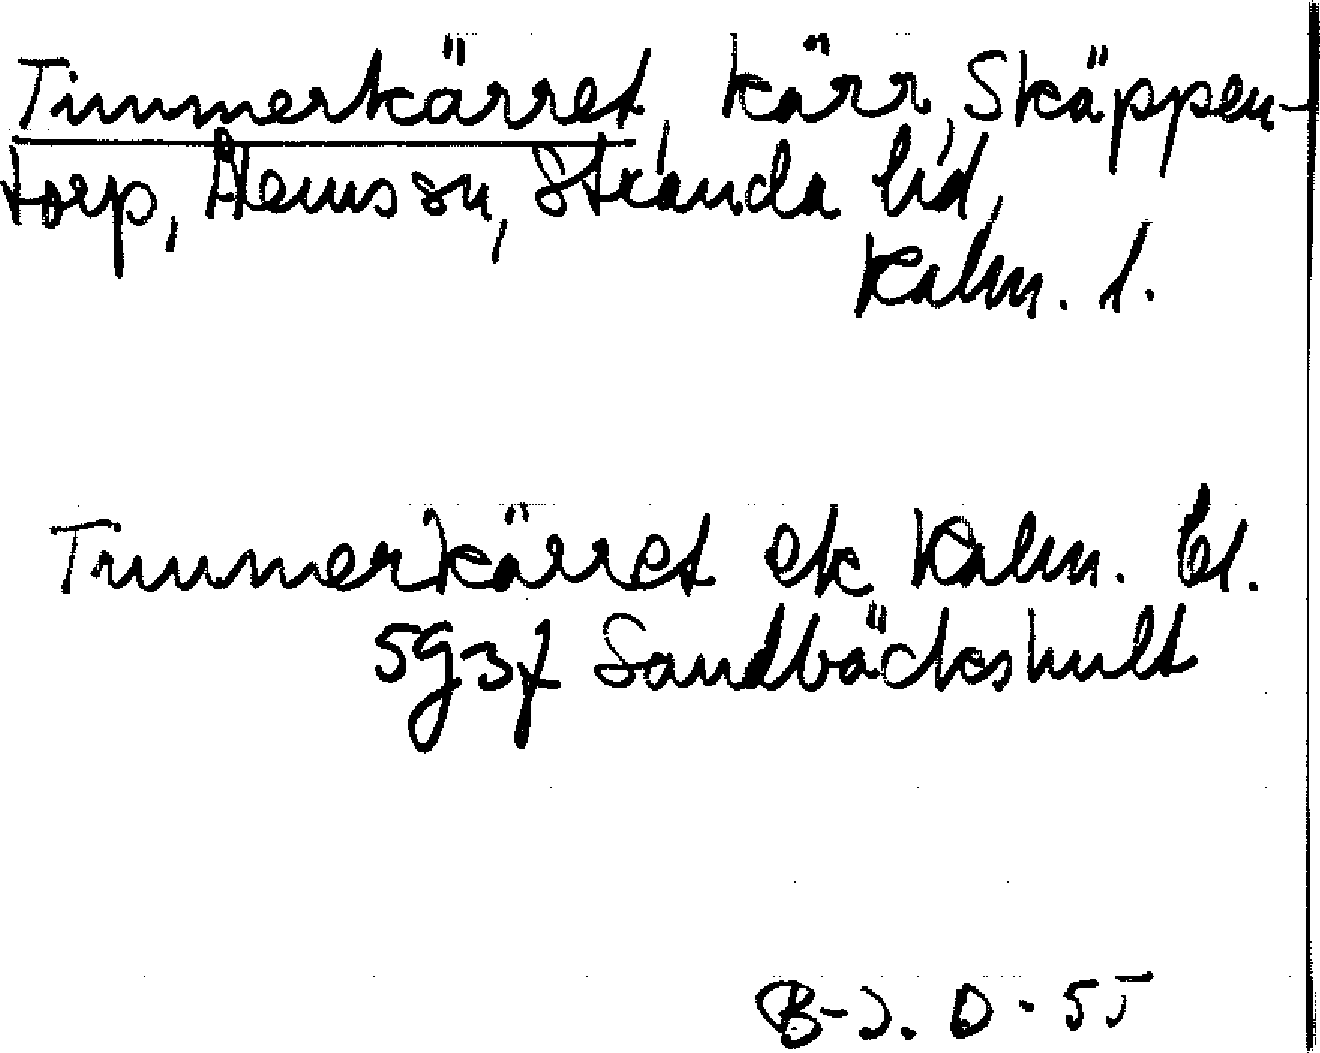 Timmerkärret, kärr, Skäppen-
torp, Ålems sn, Stranda hd,
Kalm. l.
Timmerkärret ek Kalm. bl.
5g3f Sandbäckshult
B-J. D-55